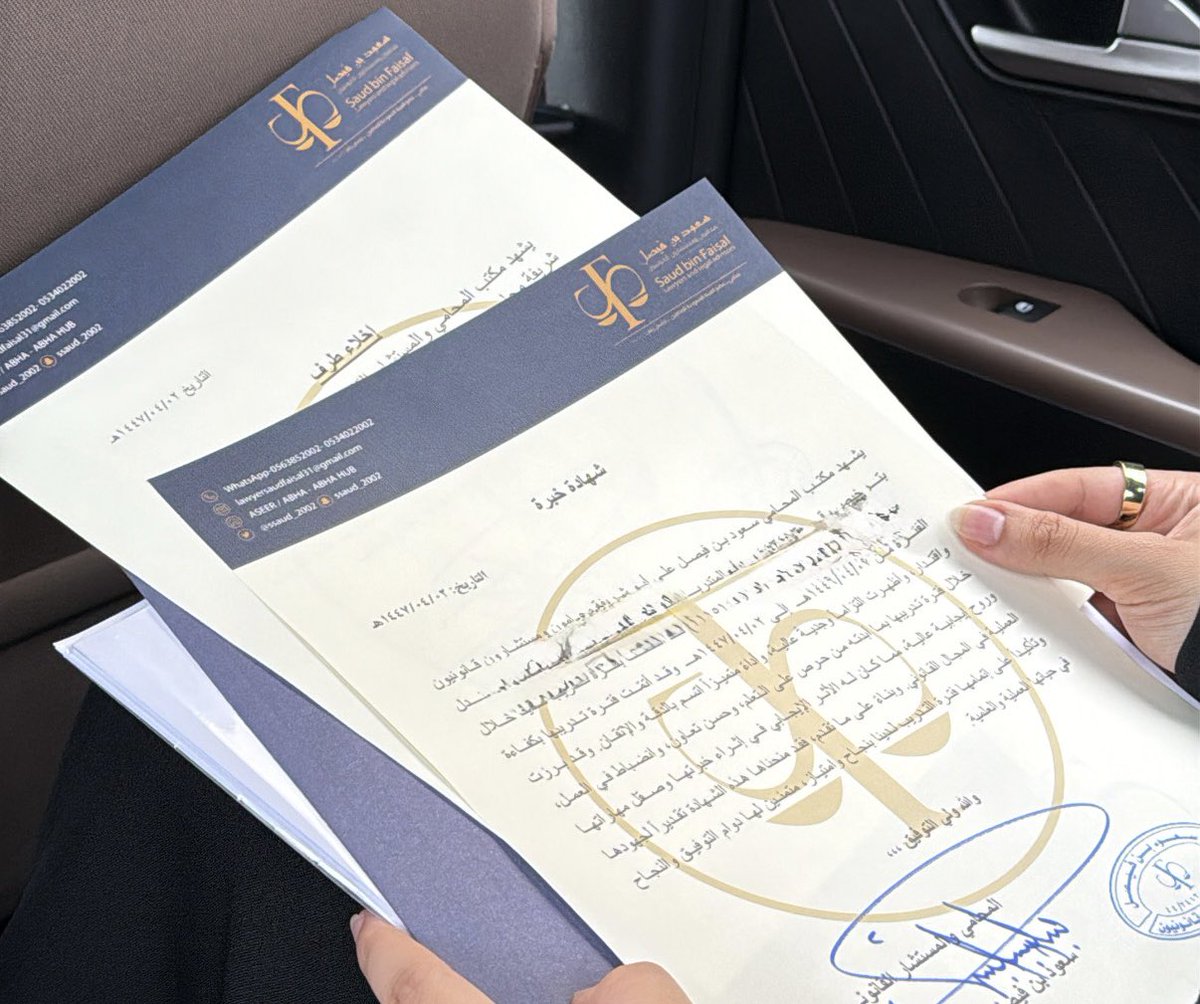 سعود بن فيصل
Saud bin Faisal
Lawyers and legal advisors
63852002- 0534022002
dfaisal31@gmail.com
/ ABHA - ABHA HUB
saud_2002 ssaud_2002
التاريخ ١٤٤٧/٠٤/٠٢هـ
إخلاء طرف
يشهد مكتب المحامي والمستشار
شريفة
سعود بن فيصل
Saud bin Faisal
Lawyers and legal advisors
WhatsApp-0563852002- 0534022002
lawyersaudfaisal31@gmail.com
ASEER / ABHA - ABHA HUB
@ssaud_2002 ssaud_2002
التاريخ: ١٤٤٧/٠٤/٠٢هـ
شهادة خبرة
يشهد مكتب المحامي سعود بن فيصل على محامون ومستشارون قانونيون
خلال
الفترة من ١٤٤٦/٠٤/٠٢هـ إلى ١٤٤٧/٠٤/٠٢هـ وقد أتمت فترة تدريبها بكفاءة
واقتدار، وأظهرت التزاماً وجدية عالية، وأداءً متميزاً اتسم بالدقة والإتقان. وقد برزت
خلال فترة تدريبها بما أبدته من حرص على التعلم، وحسن تعاون، وانضباط في العمل،
وروح إيجابية عالية، مما كان له الأثر الإيجابي في إثراء خبرتها وصقل مهاراتها
العملية في المجال القانوني. وبناءً على ما تقدم، فقد منحناها هذه الشهادة تقديراً لجهودها
وتأكيداً على إتمامها فترة التدريب لدينا بنجاح وامتياز، متمنين لها دوام التوفيق والنجاح
في حياتها العملية والعلمية.
والله ولي التوفيق ،،،
المحامي والمستشار القانوني
سعود بن فيصل